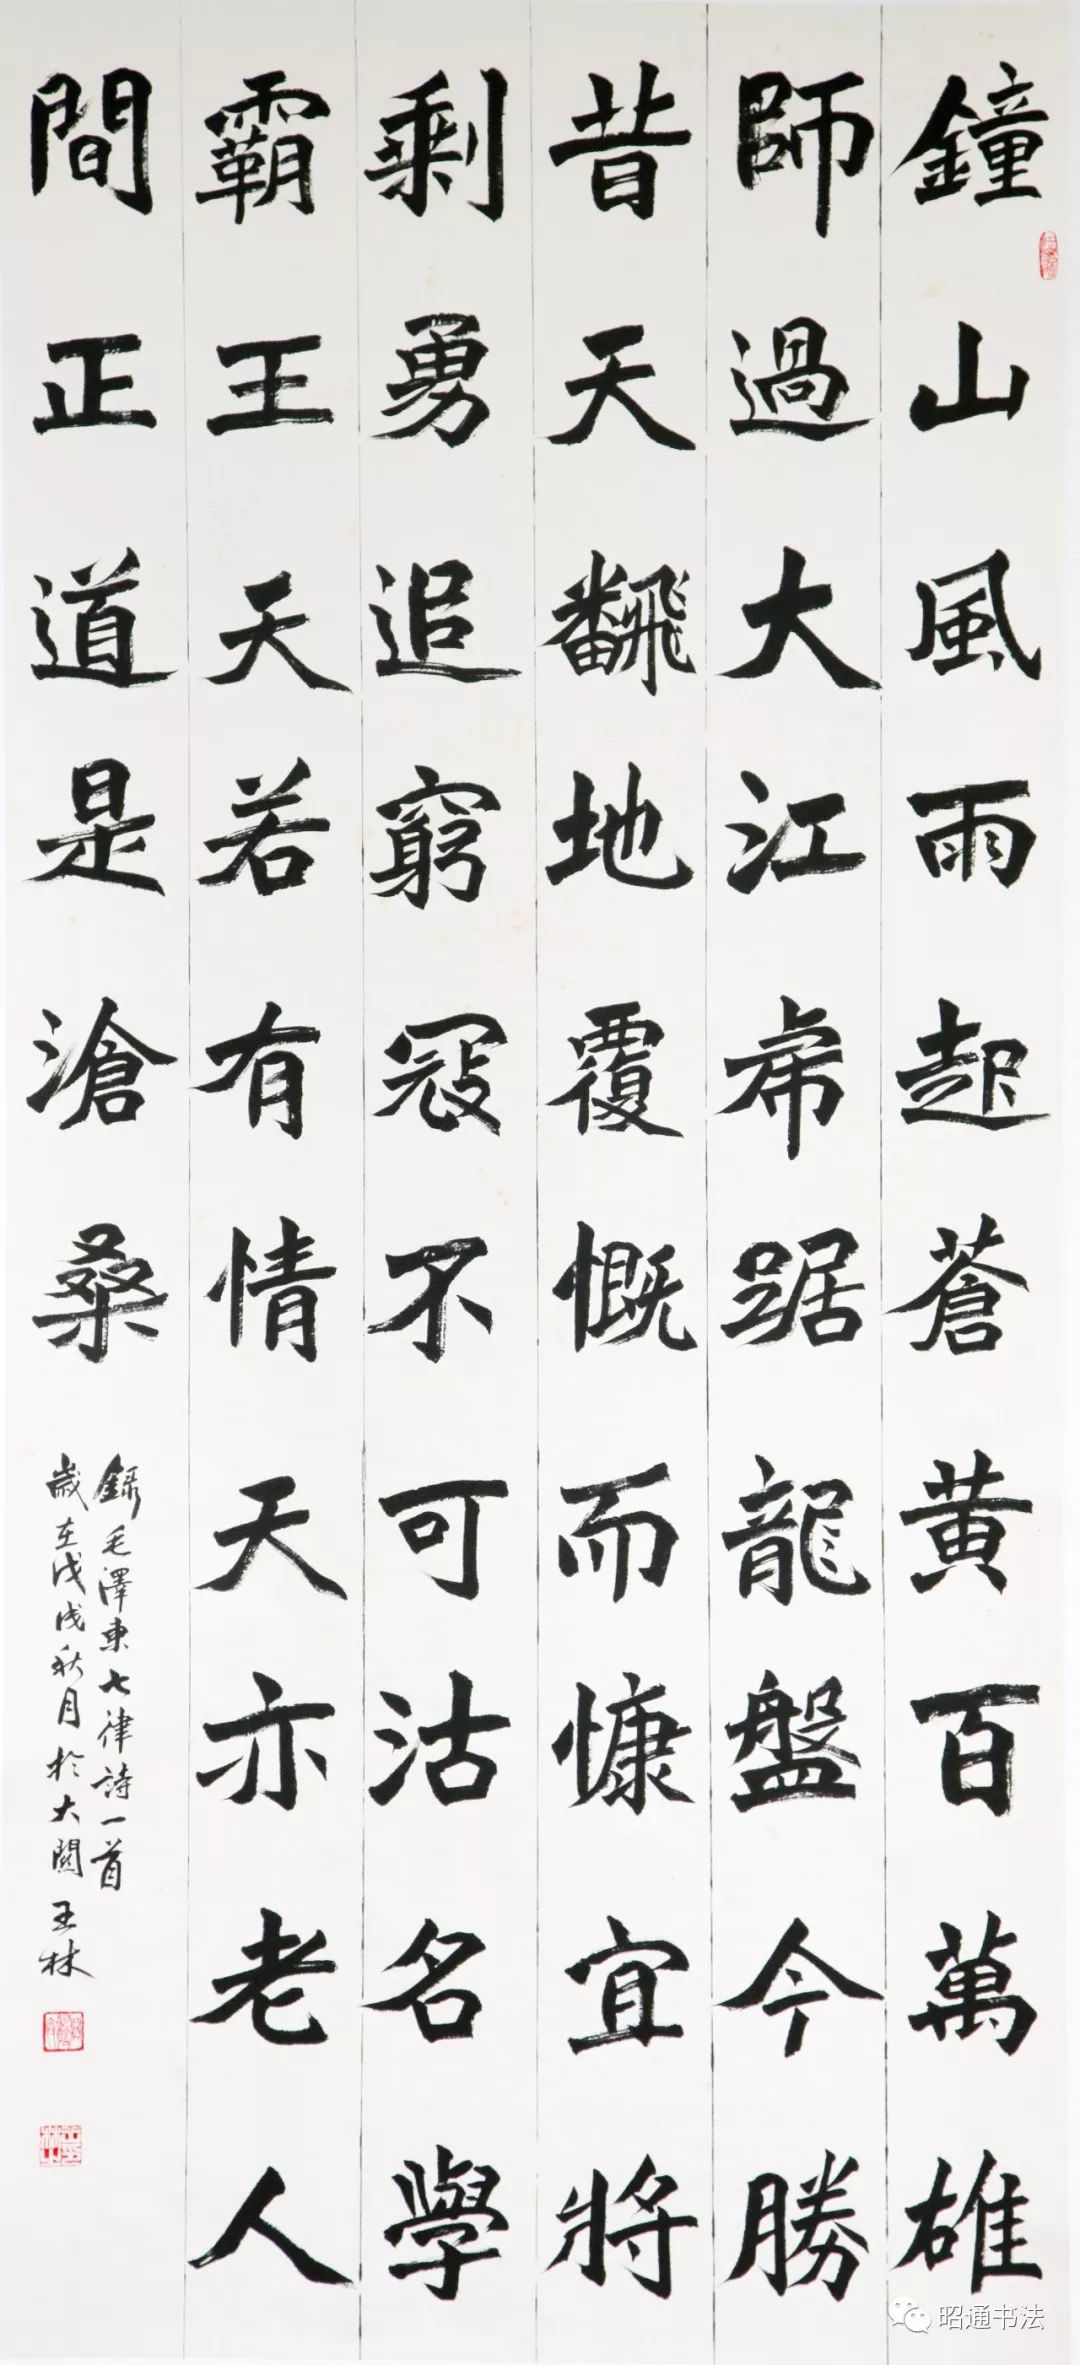 鐘山風雨起蒼黃百萬雄
師過大江虎踞龍盤今勝
昔天飜地覆慨而慷宜將
剩勇追窮寇不可沽名學
霸王天若有情天亦老人
間正道是滄桑
錄毛澤東七律詩一首
歲在戊戌秋月於大關王林
昭通书法